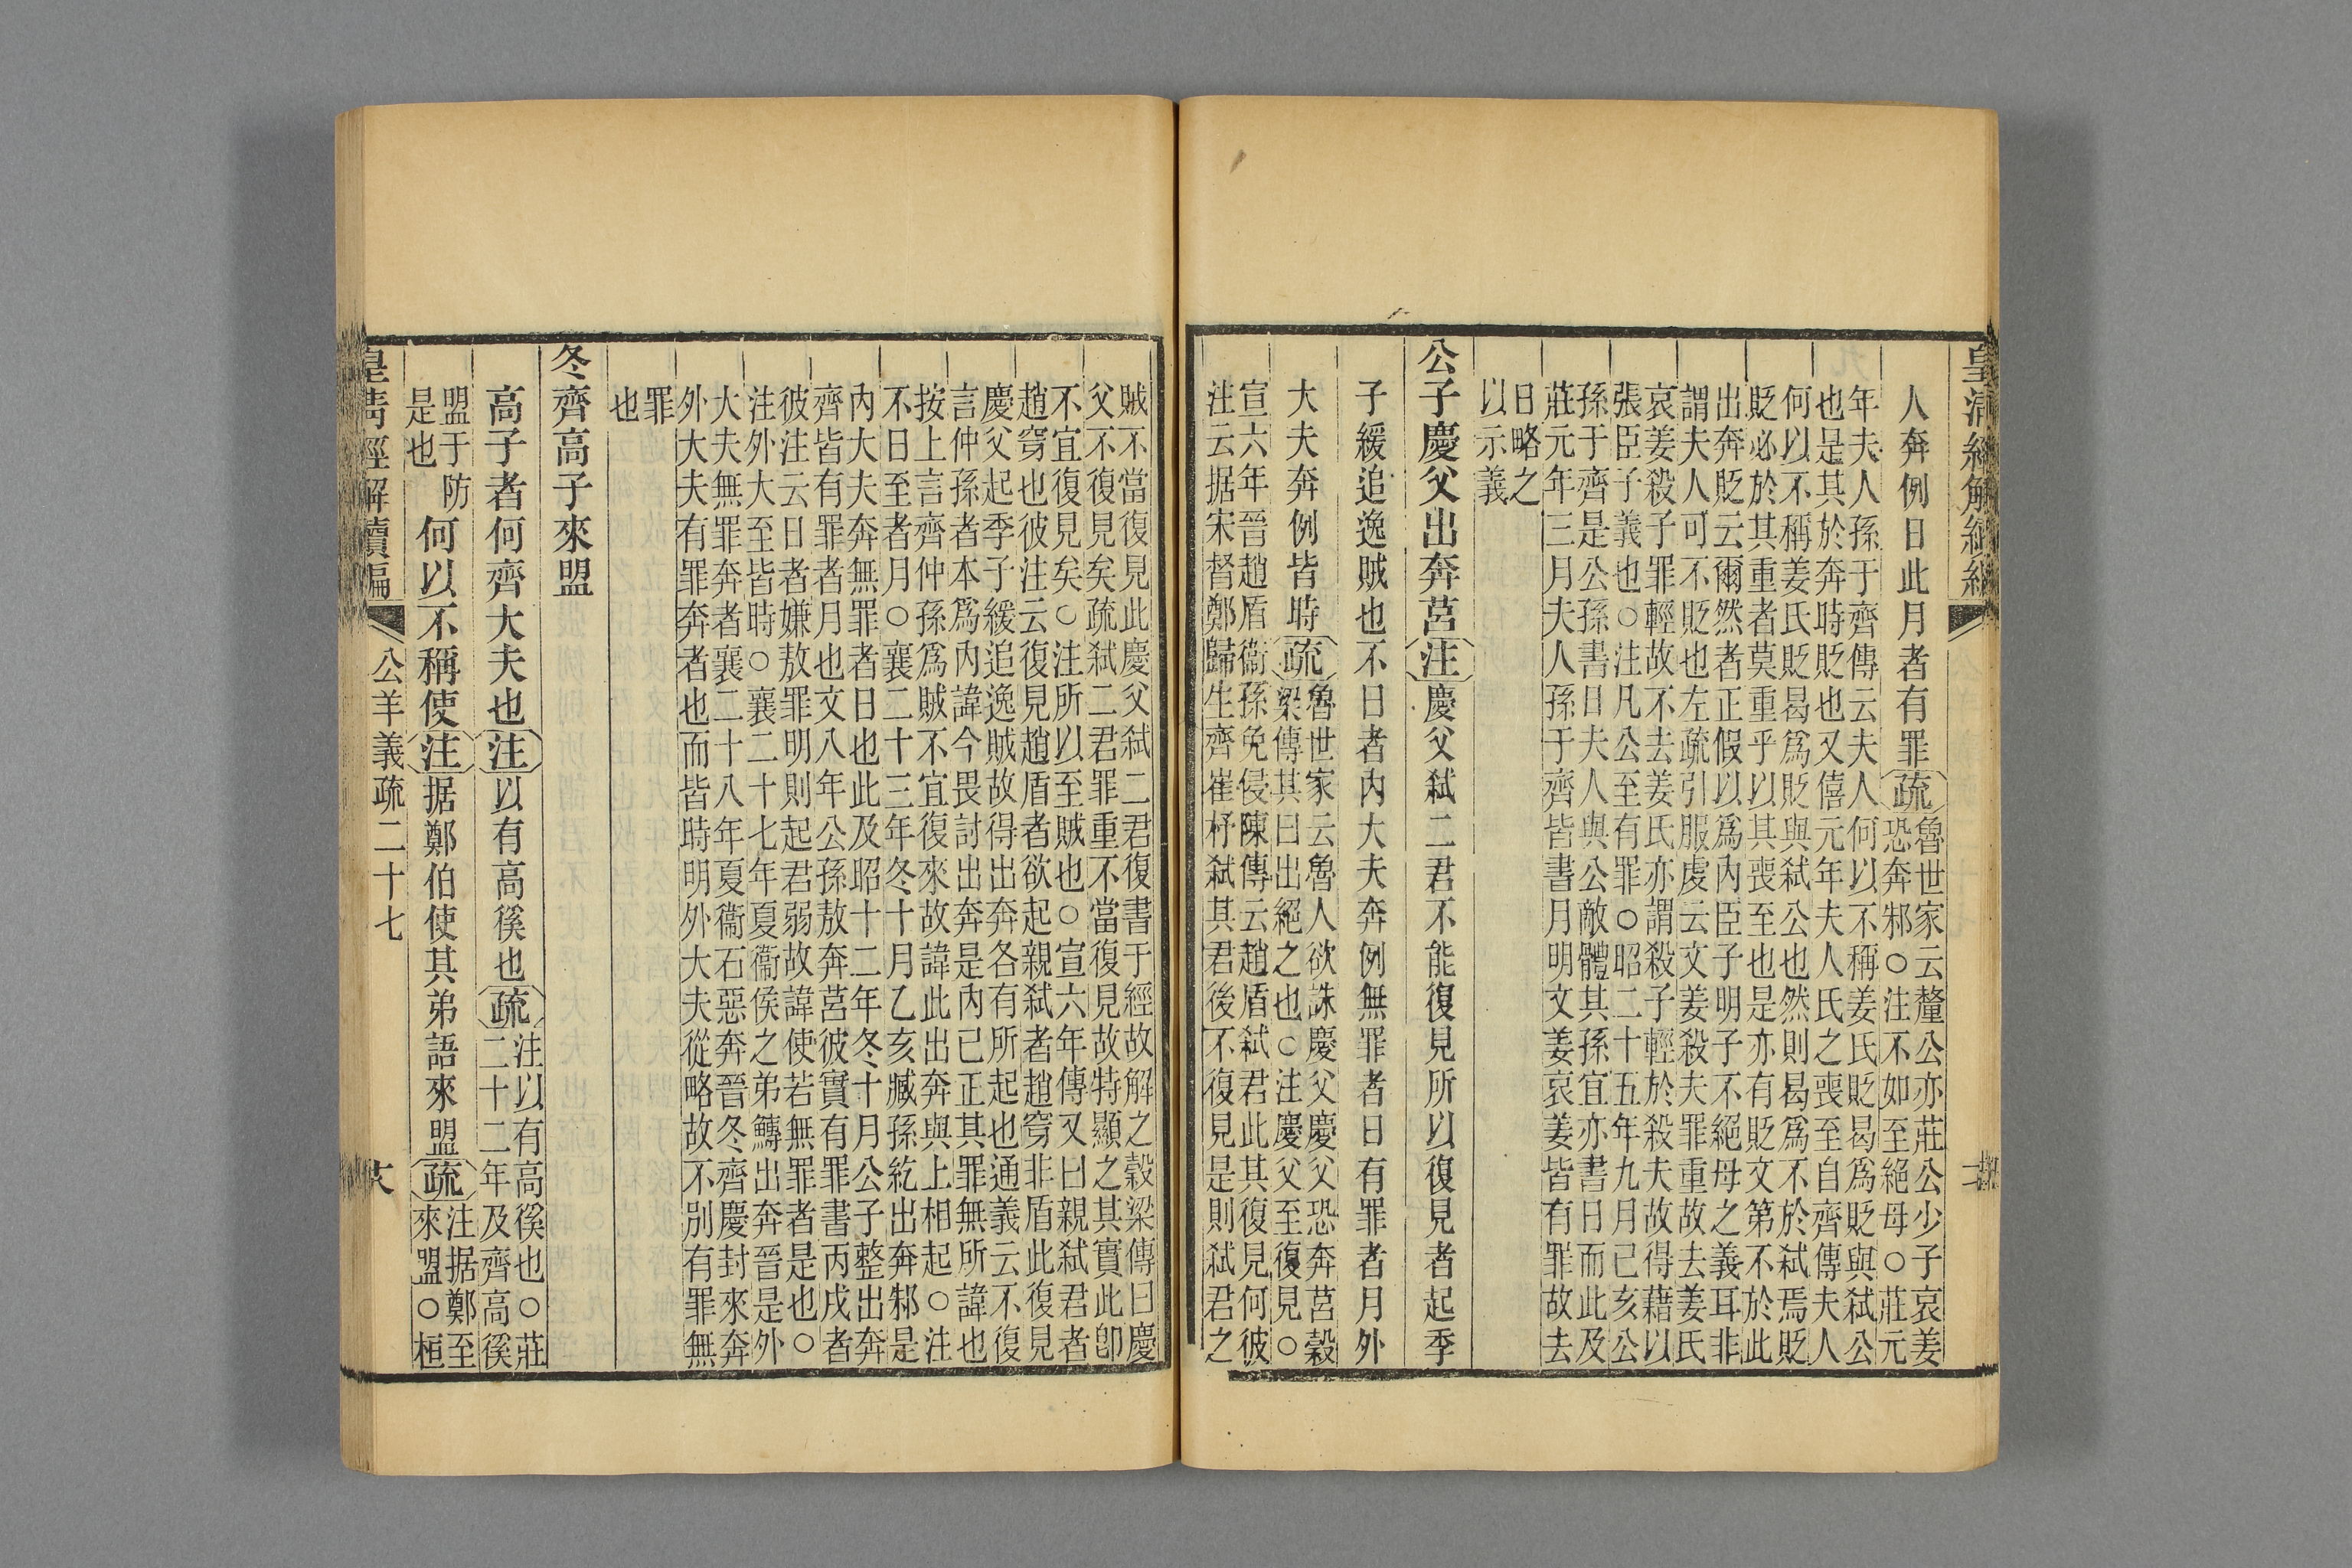 皇清經解續編
人奔例日此月者有罪疏魯世家云釐公亦莊公少子哀姜
恐奔邾○注不如至絕母○莊元
年夫人孫于齊傳云夫人何以不稱姜氏貶曷爲貶與弒公
也是其於奔時貶也又僖元年夫人氏之喪至自齊傳夫人
何以不稱姜氏貶曷爲貶與弒公也然則曷爲不於弒焉貶
貶必於其重者莫重乎以其喪至也是亦有貶文第不於此
出奔貶云爾然者正假以爲內臣子明子不絕母之義耳非
謂夫人可不貶也左疏引服虔云文姜殺夫罪重故去姜氏
哀姜殺子罪輕故不去姜氏亦謂殺子輕於殺夫故得藉以
張臣子義也○注凡公至有罪○昭二十五年九月己亥公
孫于齊是公孫書日夫人與公敵體其孫宜亦書日而此及
莊元年三月夫人孫于齊皆書月明文姜哀姜皆有罪故去
日略之
以示義
公子慶父出奔莒注慶父弒二君不能復見所以復見者起季
子緩追逸賊也不日者內大夫奔例無罪者日有罪者月外
大夫奔例皆時疏魯世家云魯人欲誅慶父慶父恐奔莒穀
梁傳其曰出絕之也○注慶父至復見○
宣六年晉趙盾衞孫免侵陳傳云趙盾弒君此其復見何彼
注云据宋督鄭歸生齊崔杼弒其君後不復見是則弒君之
賊不當復見此慶父弒二君復書于經故解之穀梁傳曰慶
父不復見矣疏弒二君罪重不當復見故特顯之其實此卽
不宜復見矣○注所以至賊也○宣六年傳又曰親弒君者
趙穿也彼注云復見趙盾者欲起親弒者趙穿非盾此復見
慶父起季子緩追逸賊故得出奔各有所起也通義云不復
言仲孫者本爲內諱今畏討出奔是內已正其罪無所諱也
按上言齊仲孫爲賊不宜復來故諱此出奔與上相起○注
不日至者月○襄二十三年冬十月乙亥臧孫紇出奔邾是
內大夫奔無罪者日也此及昭十二年冬十月公子整出奔
齊皆有罪者月也文八年公孫敖奔莒彼實有罪書丙戌者
彼注云日者嫌敖罪明則起君弱故諱使若無罪者是也○
注外大至皆時○襄二十七年夏衞侯之弟鱄出奔晉是外
大夫無罪奔者襄二十八年夏衞石惡奔晉冬齊慶封來奔
外大夫有罪奔者也而皆時明外大夫從略故不別有罪無
罪
也
冬齊高子來盟
高子者何齊大夫也注以有高徯也疏注以有高徯也○莊
二十二年及齊高徯
盟于防
是也
何以不稱使注据鄭伯使其弟語來盟疏注据鄭至
來盟○桓
皇清經解續編
公羊義疏二十七